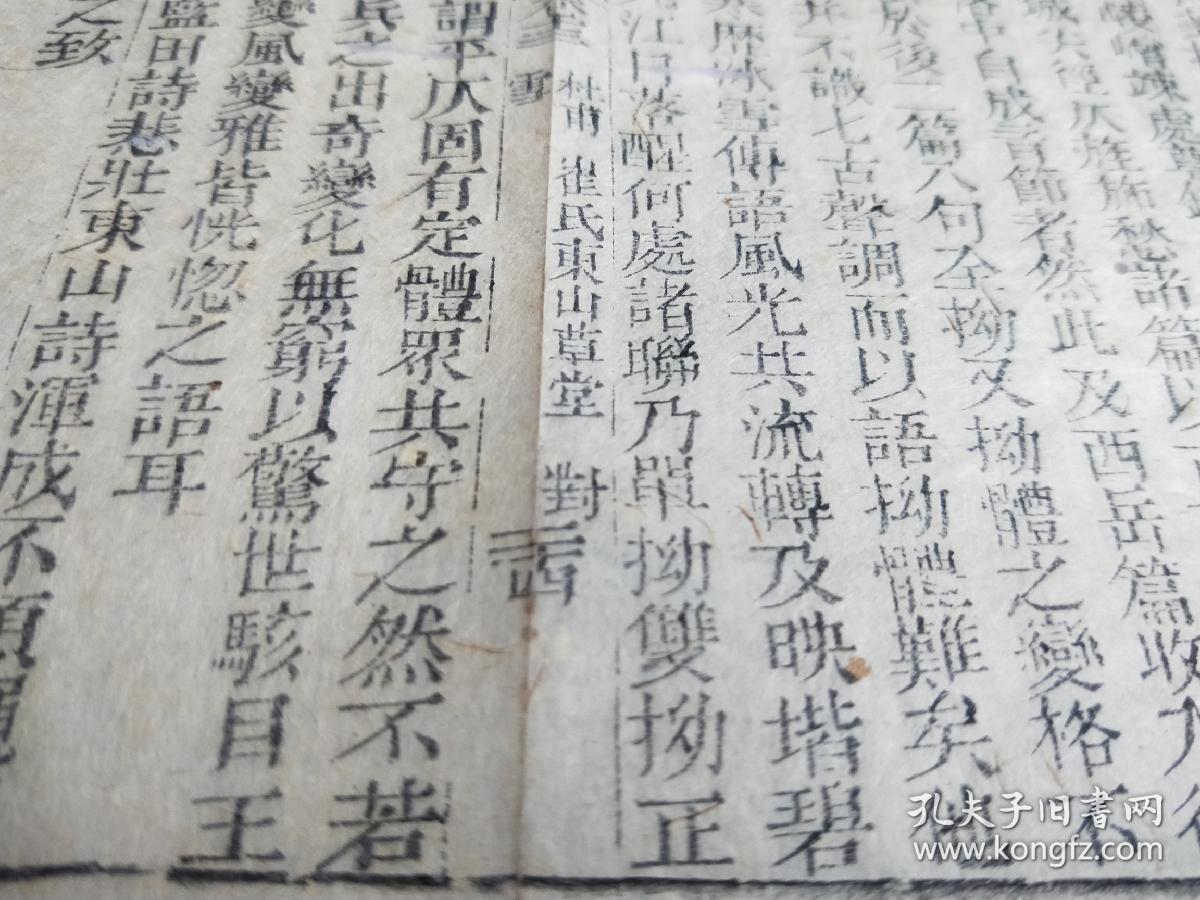 處
城尖徑仄旌旆愁諸篇以
中自成音節者然此及西岳篇收
於後二篇八句全拗又拗體之變格不
不識七古聲調而以語拗體難矣他
麻冰雪仙語風光共流轉及映堦碧
江日落醒何處諸聯乃單拗雙拗正
杜甫 崔氏東山草堂 對雪
調平仄固有定體眾共守之然不若
兵之出奇變化無窮以驚世駭目王
變風變雅皆恍惚之語耳
藍田詩悲壯東山詩渾成不
之致
孔夫子旧书网
www.kongfz.com